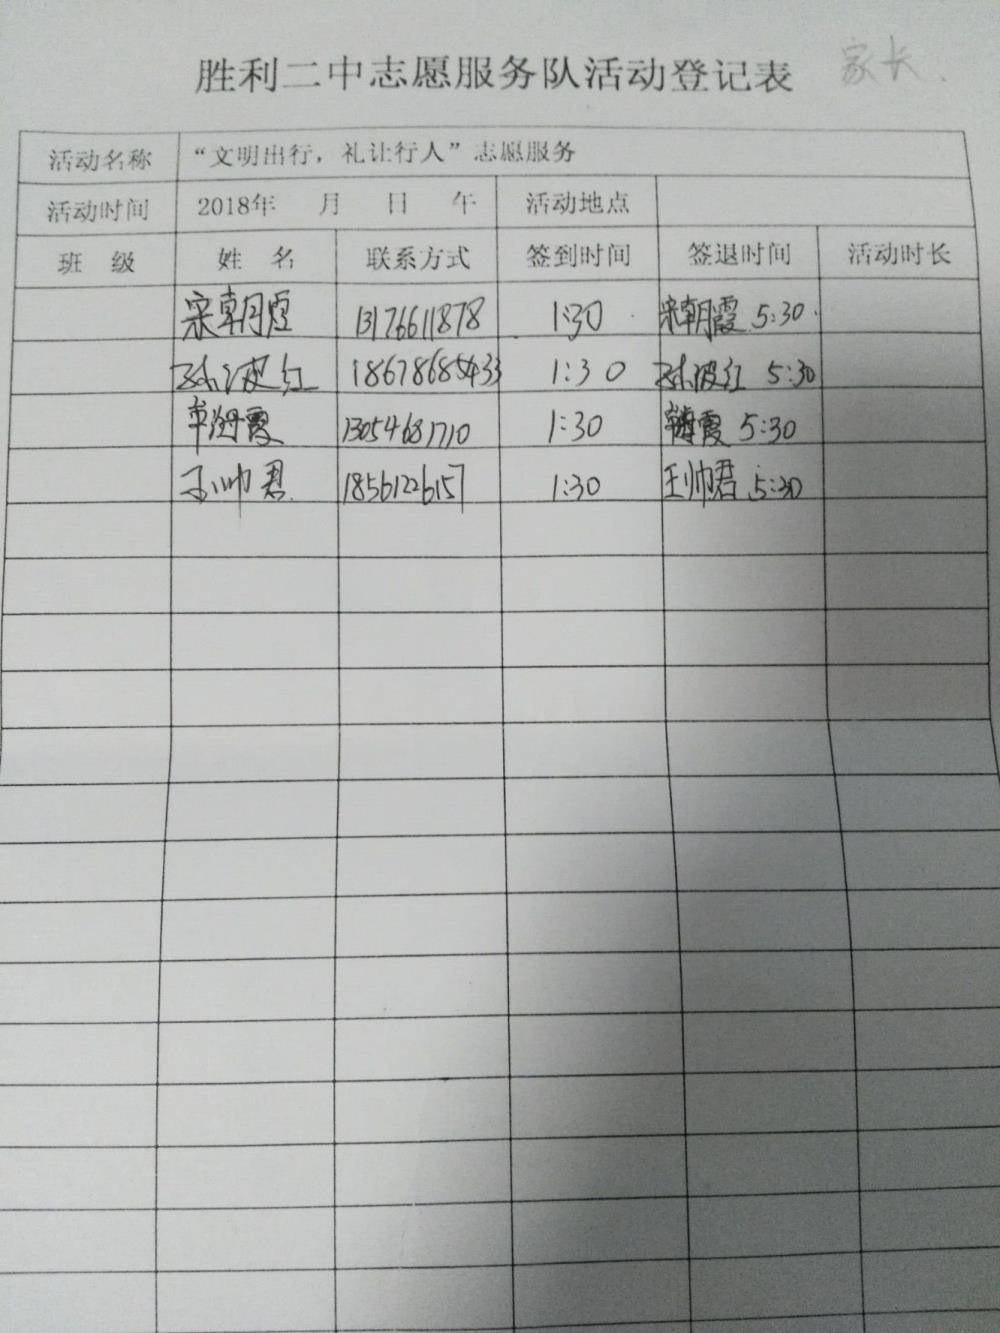 胜利二中志愿服务队活动登记表 家长
活动名称 “文明出行，礼让行人”志愿服务
活动时间 2018年 月 日 午 活动地点
班 级 姓 名 联系方式 签到时间 签退时间 活动时长
宋朝霞 13176611878 1:30 宋朝霞 5:30
孙波红 18678685433 1:30 孙波红 5:30
海霞 13054681710 1:30 海霞 5:30
王帅君 18561226157 1:30 王帅君 5:30